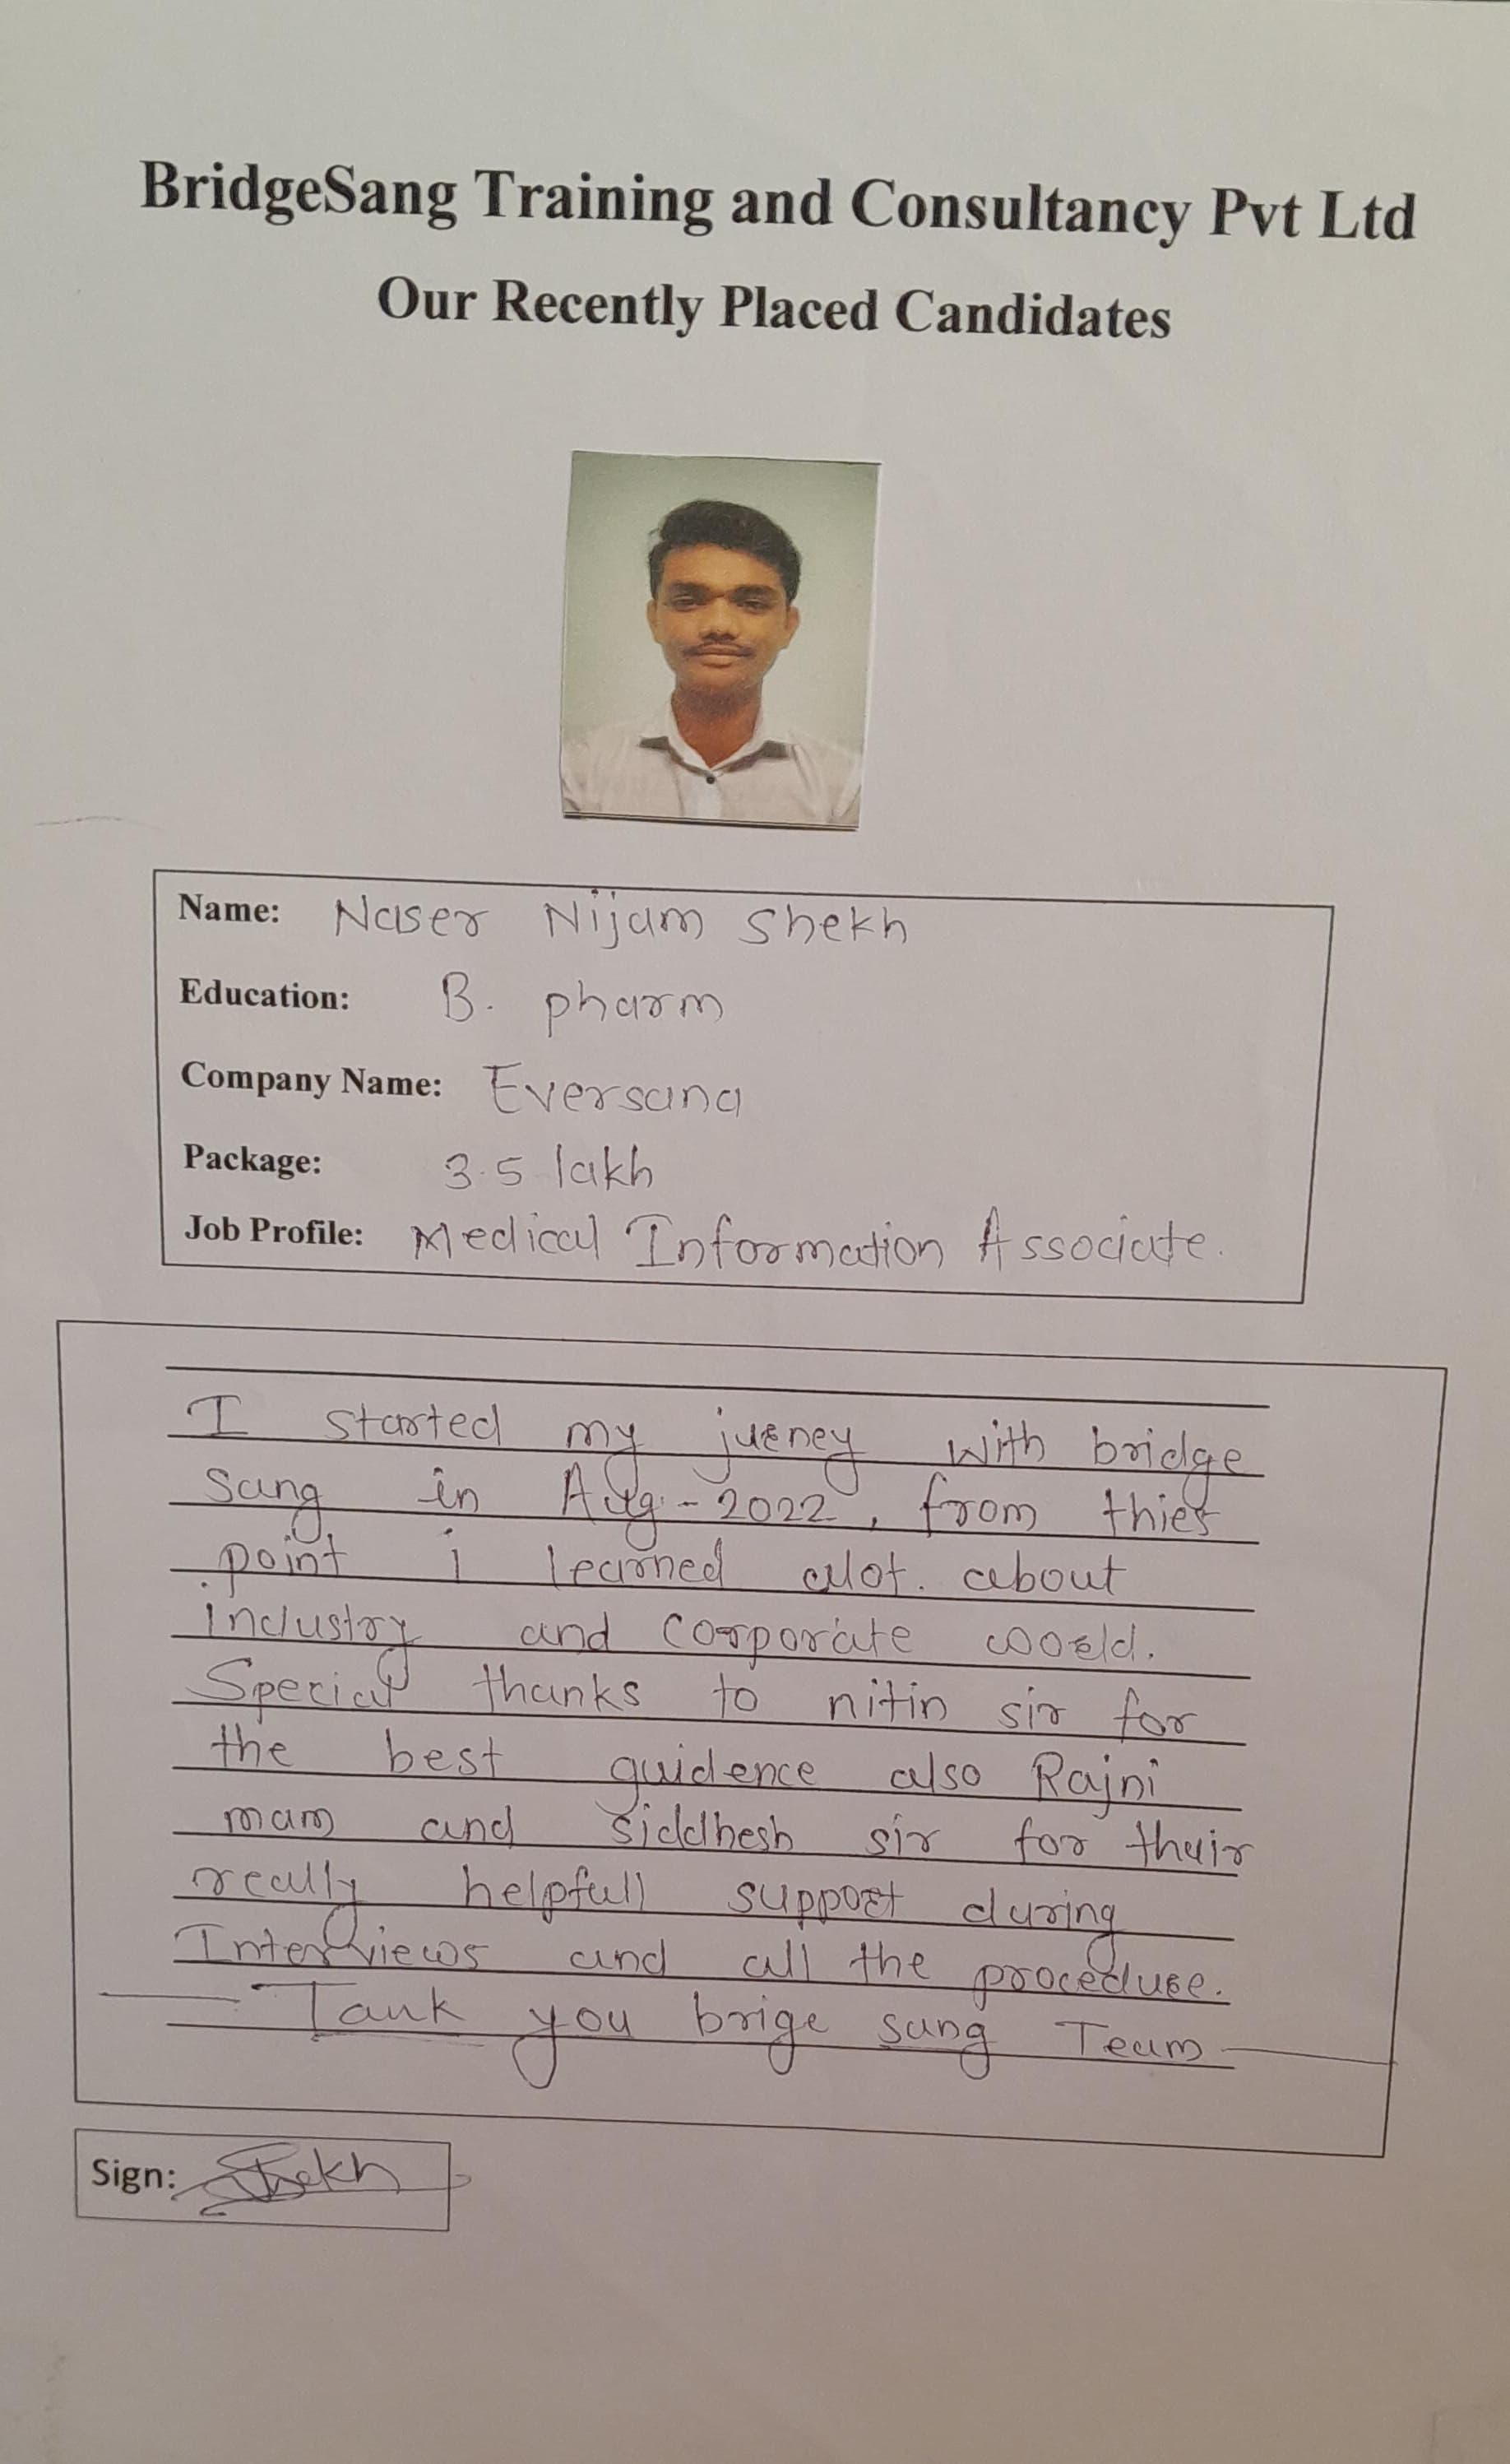 BridgeSang Training and Consultancy Pvt Ltd
Our Recently Placed Candidates
Name: Naser Nijam Shekh
Education: B. pharm
Company Name: Eversana
Package: 3.5 lakh
Job Profile: Medical Information Associate.
I started my jurney with bridge
sang in Aug-2022, from thier
point i learned alot. about
industry and corporate world.
Special thanks to nitin sir for
the best guidence also Rajni
mam and siddhesh sir for their
really helpfull support during
Interviews and all the procedure.
Tank you brige sang Team
Sign: Shekh